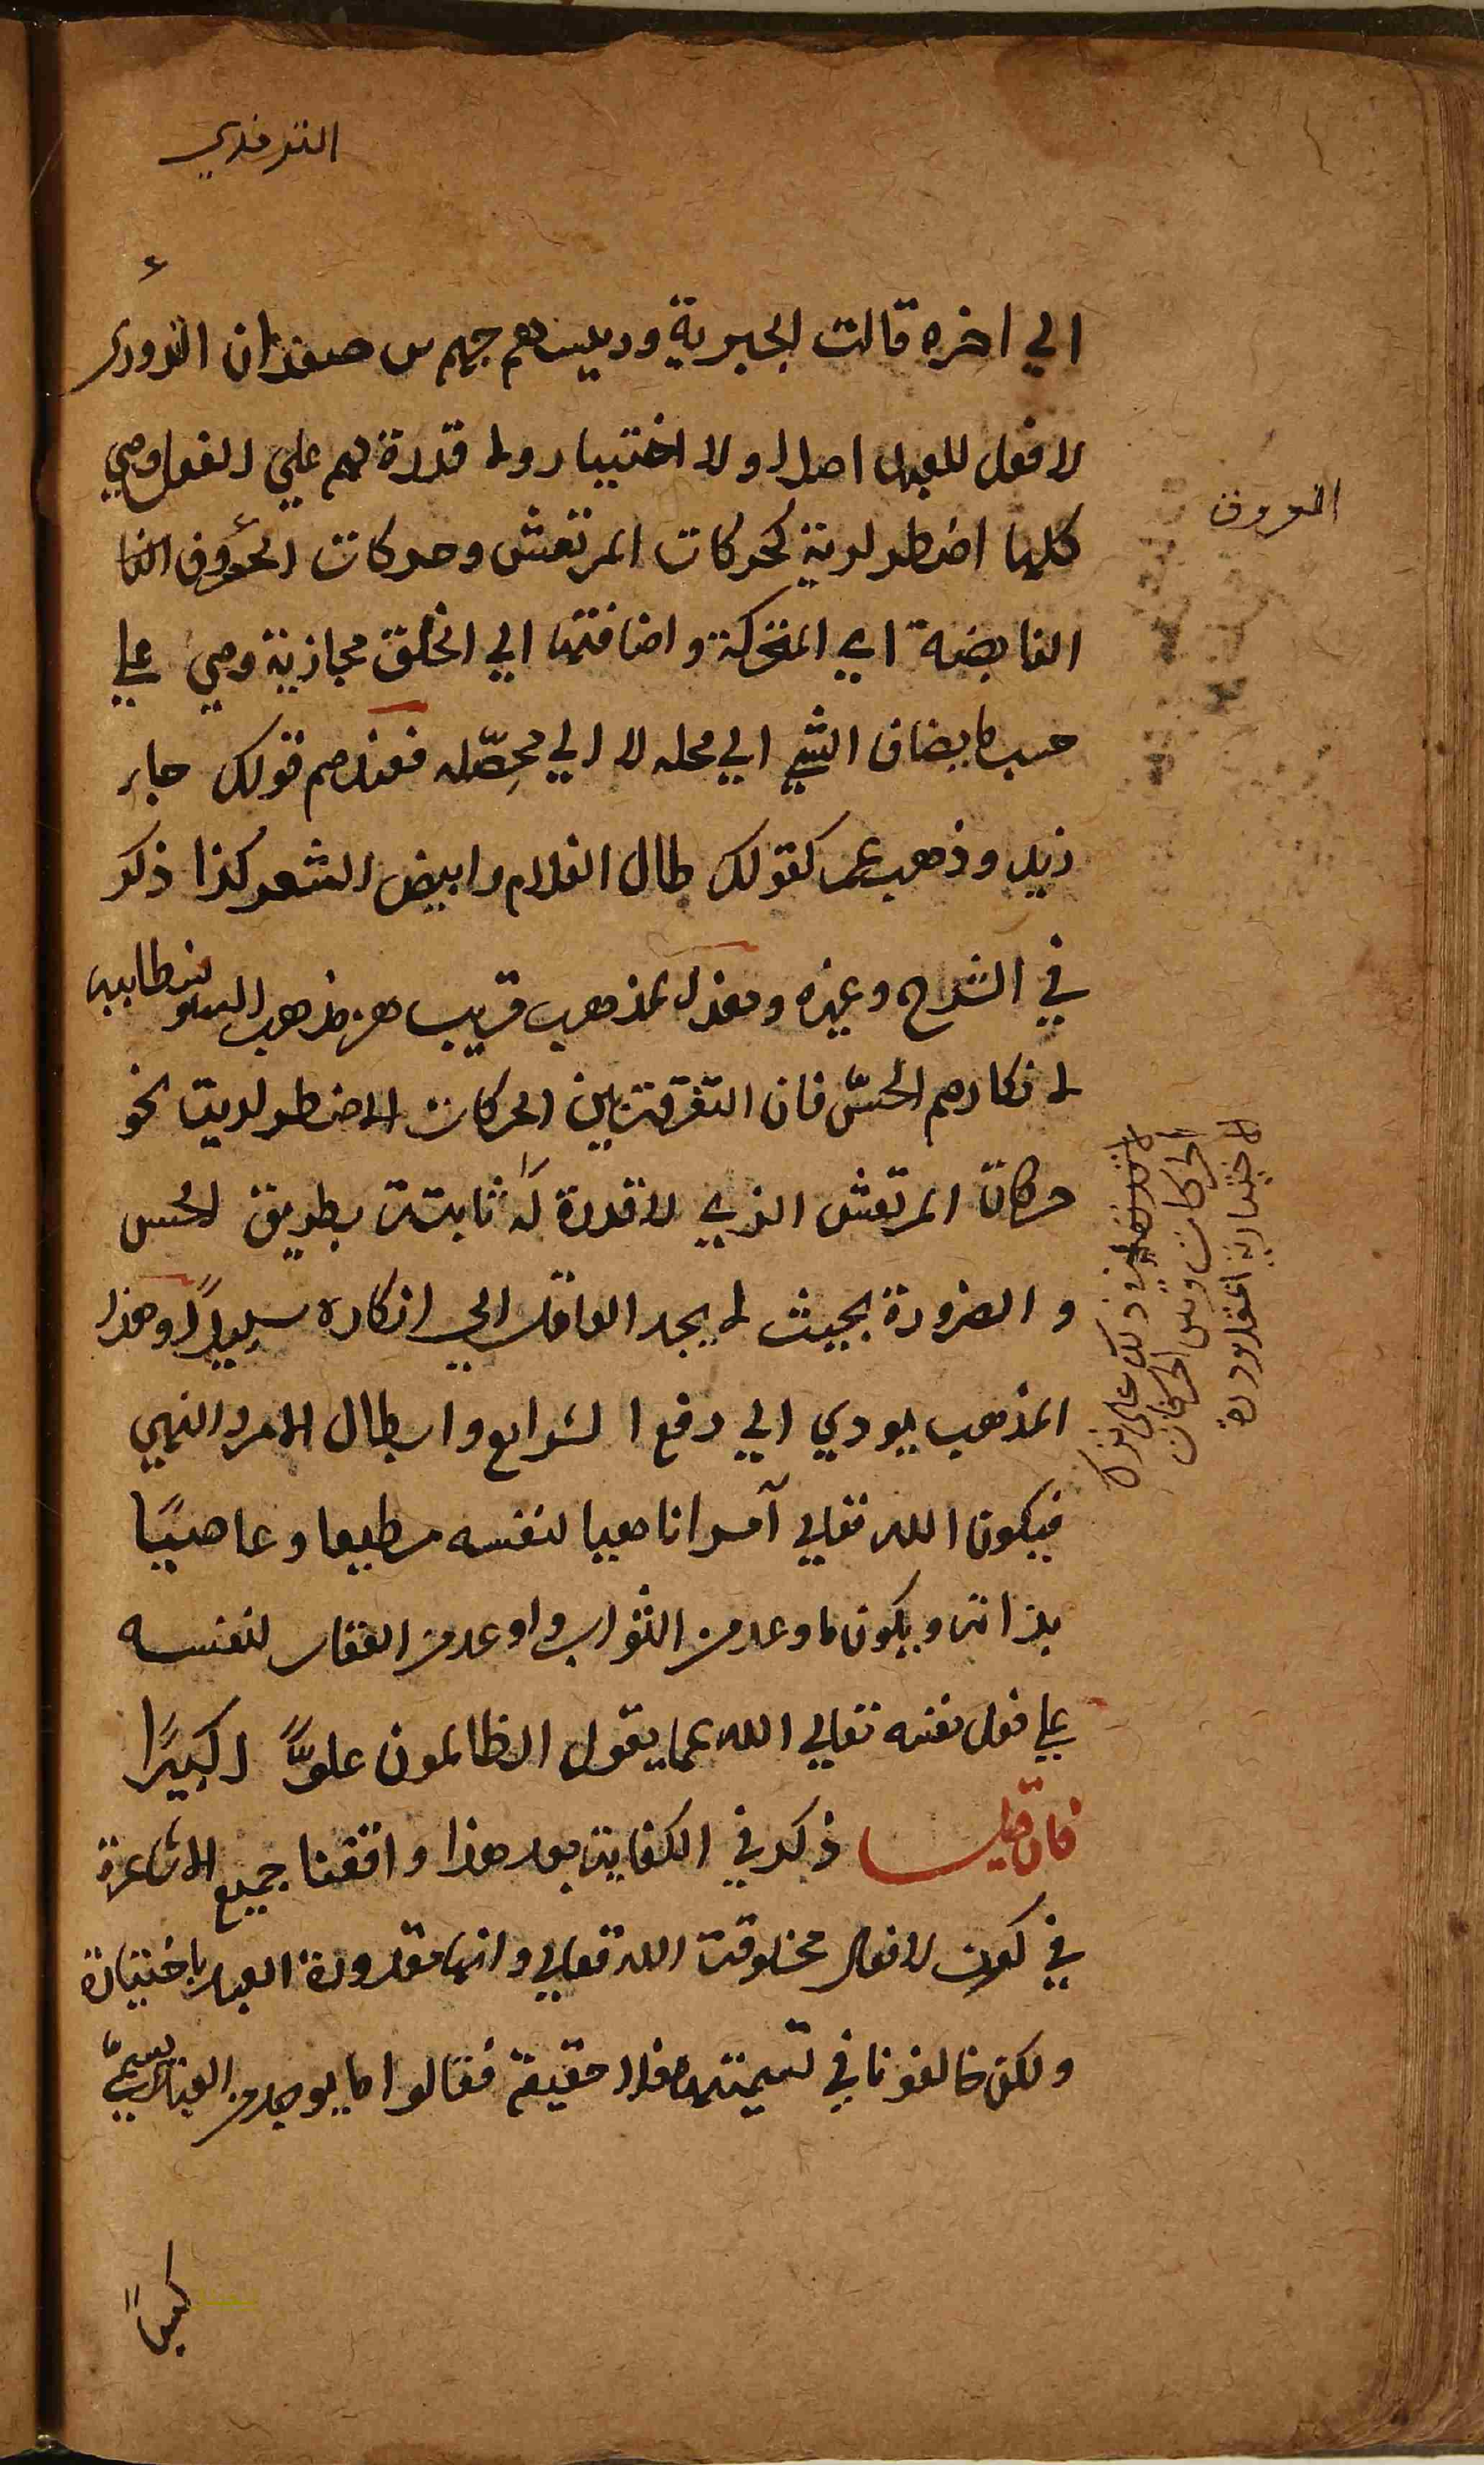 الترمذي
الي اخره قالت الجبرية ورييسهم جهم بن صفوان الترمذي
لا فعل للعبد اصلا ولا اختيار ولا قدرة لهم علي الفعل وهي
كلها اضطرارية كحركات المرتعش وحركات العروق النا
النابضة اي المتحركة واضافتها الي الخلق مجازية وهي علي
حسب ما يضاف الشي الي محله لا الي محصّله فعندهم قولك جاء
زيد وذهب عمر كقولك طال الغلام وابيض الشعر كذا ذكر
في الشرح وغيره وهذا المذهب قريب من مذهب السوفسطاييه
لانكارهم الحسّ فان التفرقة بين الحركات الاضطرارية نحو
حركات المرتعش الذي لا قدرة له ثابتة بطريق الحس
والضرورة بحيث لا يجد العاقل الي انكاره سبيلاً وهذا
المذهب يودي الي رفع الشرايع وابطال الامر والنهي
فيكون الله تعالي آمرا ناهيا لنفسه مطيعا وعاصيًا
بذاته ويكون ما وعد من الثواب واوعد من العقاب لنفسه
علي فعل نفسه تعالي الله عما يقول الظالمون علوًّا كبيرًا
فان قيل ذكر في الكفاية بعد هذا وافقنا جميع الاشاعرة
في كون الافعال مخلوقة الله تعالي وانها مقدورة العبد باختياره
ولكن خالفونا في تسميتها فعلا حقيقة فقالوا ما يوجد من العباد يسمّي
كسبًا
العروق
الحركات وبين الحركات
الاختيارية المقدورة